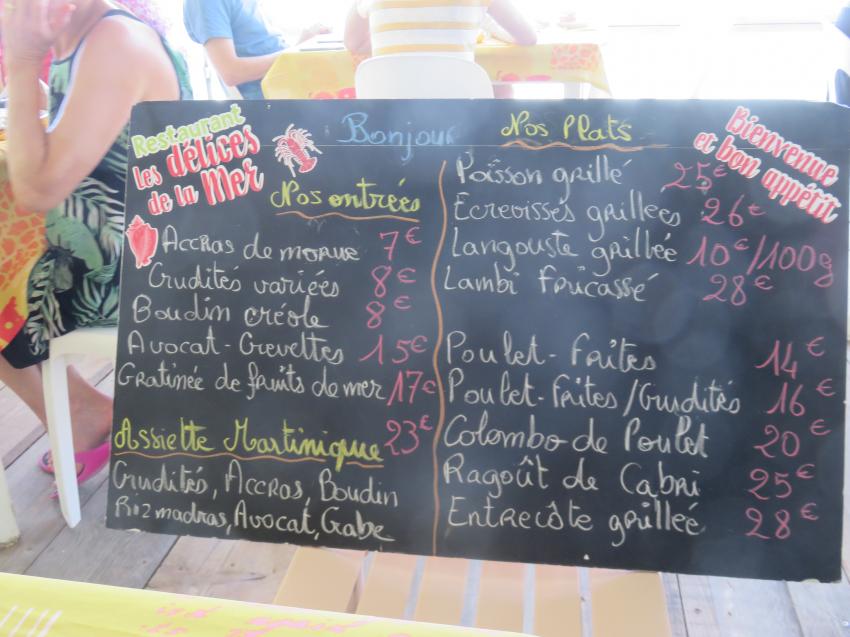 Restaurant
les délices
de la Mer
Bonjour
Nos entrées
Accras de morue 7€
Crudités variées 8€
Boudin créole 8€
Avocat-Crevettes 15€
Gratinée de fruits de mer 17€
Assiette Martinique 23€
Crudités, Accras, Boudin
Riz madras, Avocat, Crabe
Nos Plats
Bienvenue
et bon appétit
Poisson grillé 25€
Ecrevisses grillees 26€
Langouste grillée 10€/100g
Lambi fricassé 28€
Poulet-Frites 14€
Poulet-Frites/Crudités 16€
Colombo de Poulet 20€
Ragoût de Cabri 25€
Entrecôte grilleé 28€